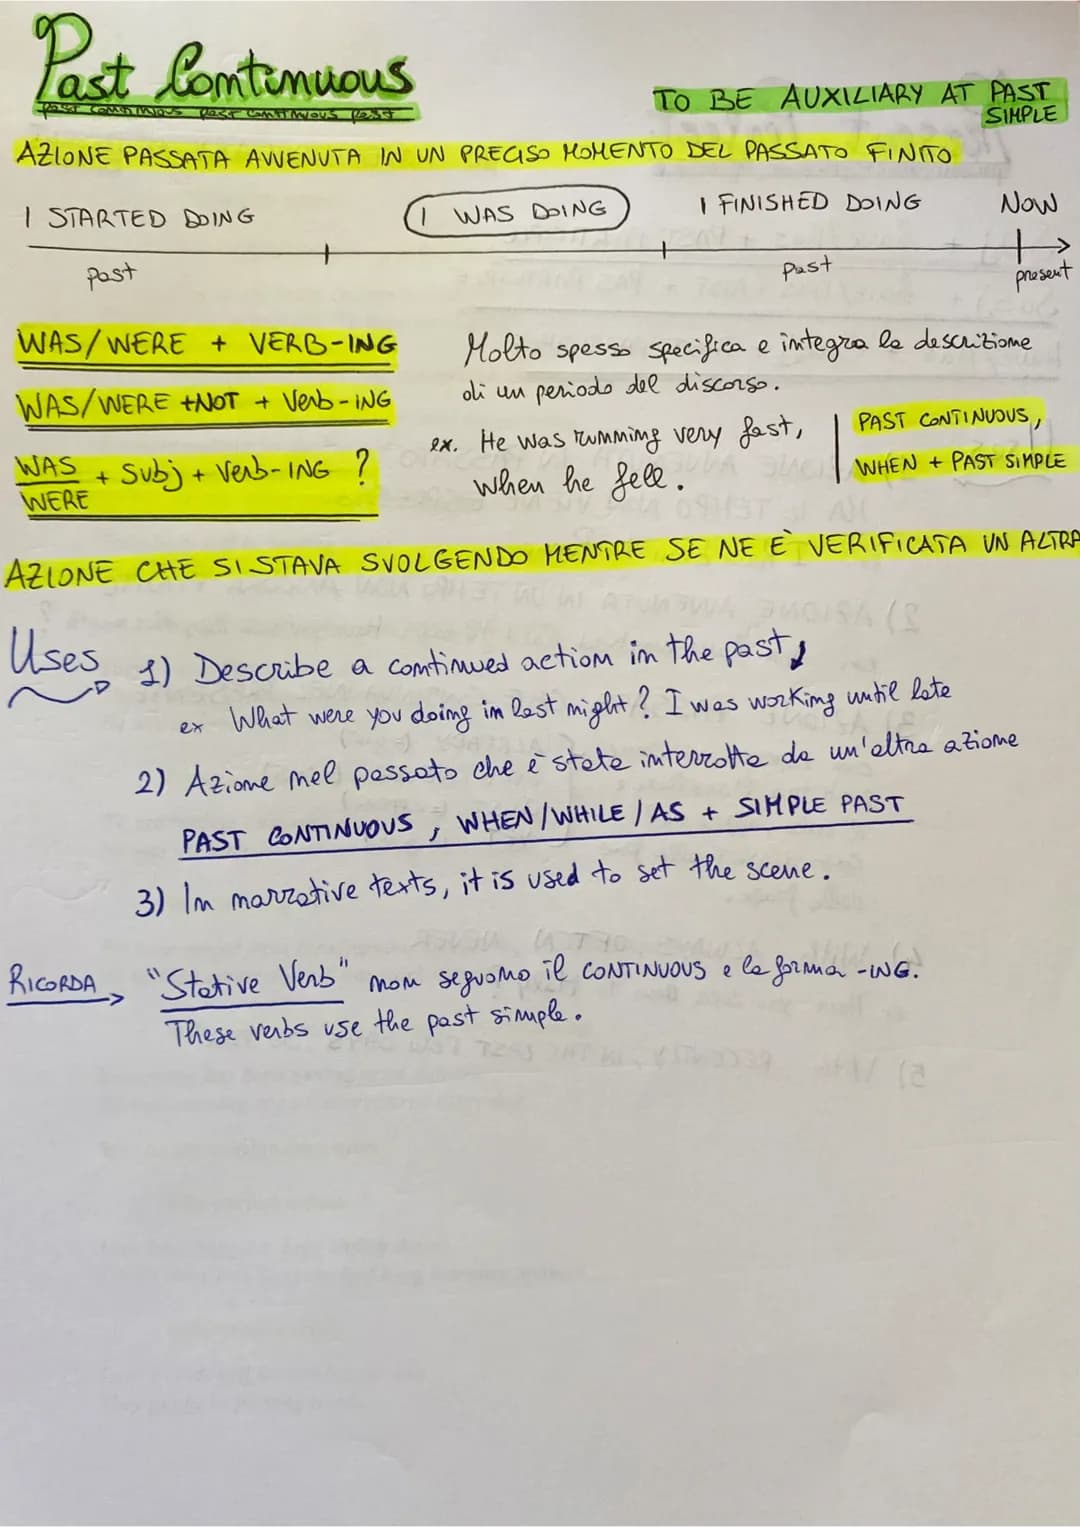 Past Continuous
past continuous past continuous past
TO BE AUXILIARY AT PAST
SIMPLE
AZIONE PASSATA AVVENUTA IN UN PRECISO MOMENTO DEL PASSATO FINITO
I STARTED DOING
I WAS DOING
I FINISHED DOING
NOW
past
past
present
WAS/WERE + VERB-ING
WAS/WERE +NOT + Verb-ING
WAS
WERE
+ Subj + Verb-ING ?
Molto spesso specifica e integra la descrizione
di un periodo del discorso.
ex. He was running very fast,
when he fell.
PAST CONTINUOUS,
WHEN + PAST SIMPLE
AZIONE CHE SI STAVA SVOLGENDO MENTRE SE NE È VERIFICATA UN ALTRA
Uses
1) Describe a continued action in the past,
ex What were you doing in last night? I was working until late
2) Azione nel passato che è stata interrotta da un'altra azione
PAST CONTINUOUS, WHEN/WHILE/AS + SIMPLE PAST
3) In narrative texts, it is used to set the scene.
RICORDA
"Stative Verb" non seguono il CONTINUOUS e la forma -ING.
These verbs use the past simple.